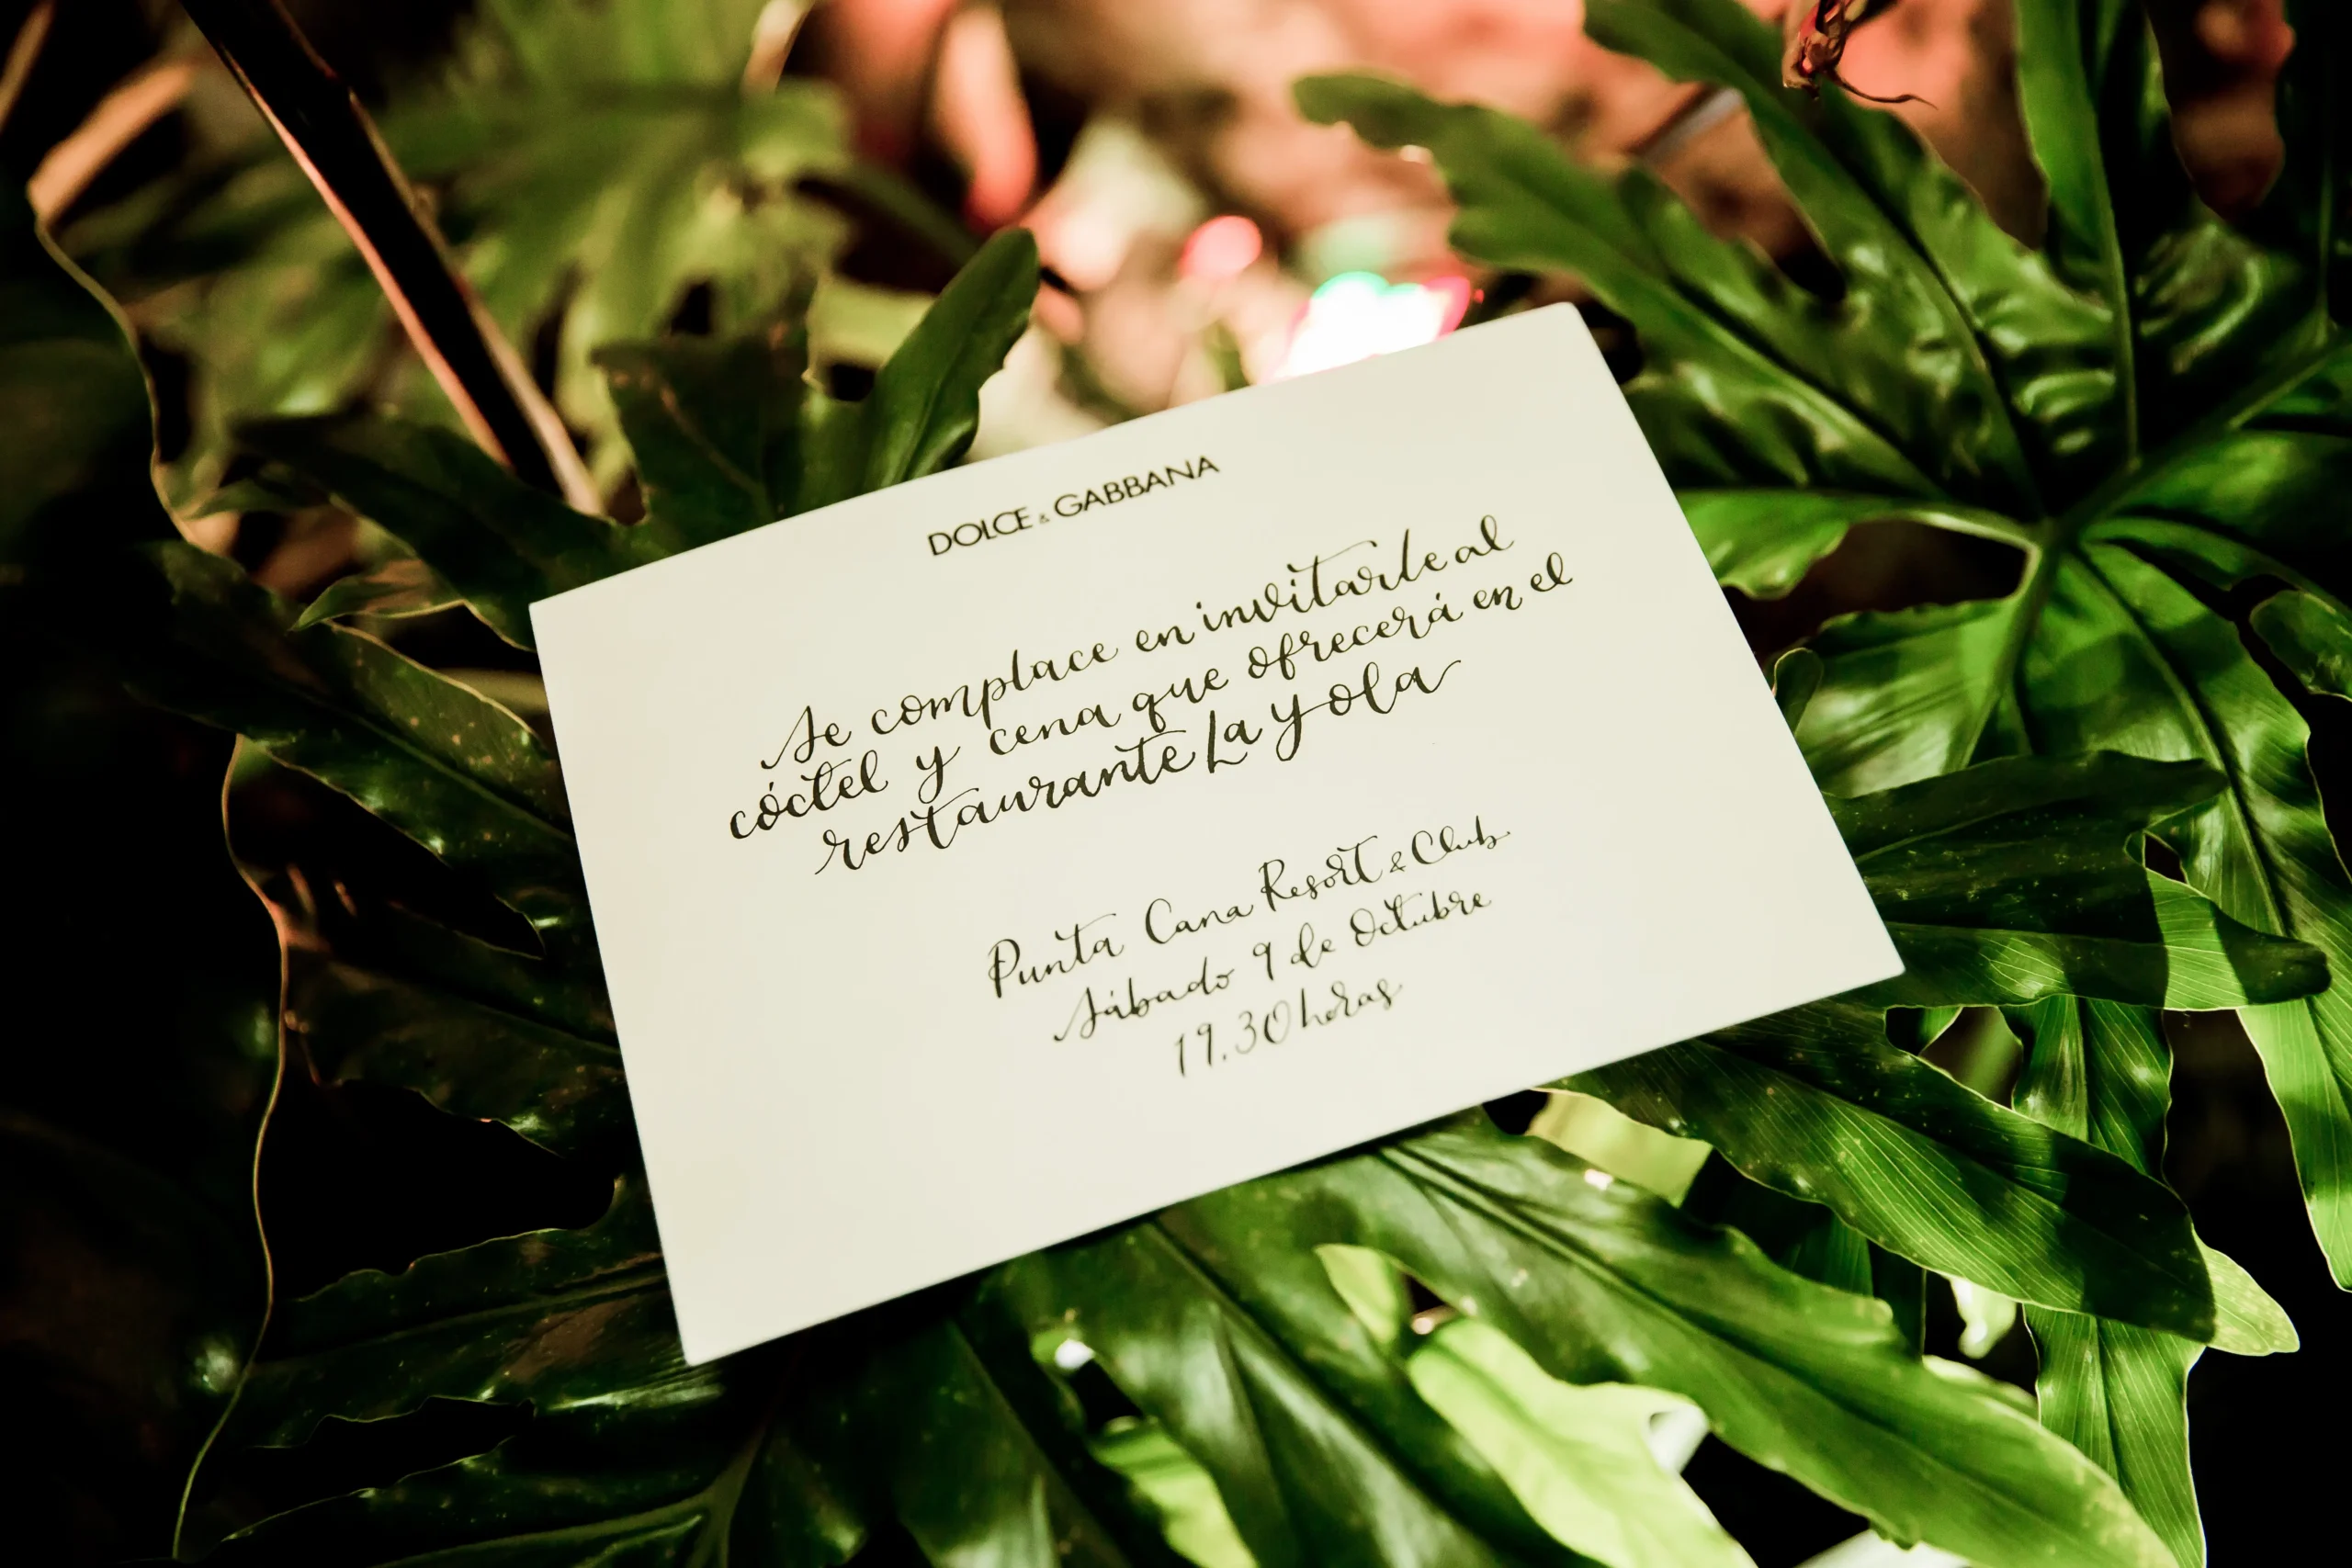 DOLCE & GABBANA
Se complace en invitarle al
cóctel y cena que ofrecerá en el
restaurante La Yola
Punta Cana Resort & Club
Sábado 9 de Octubre
19.30 horas